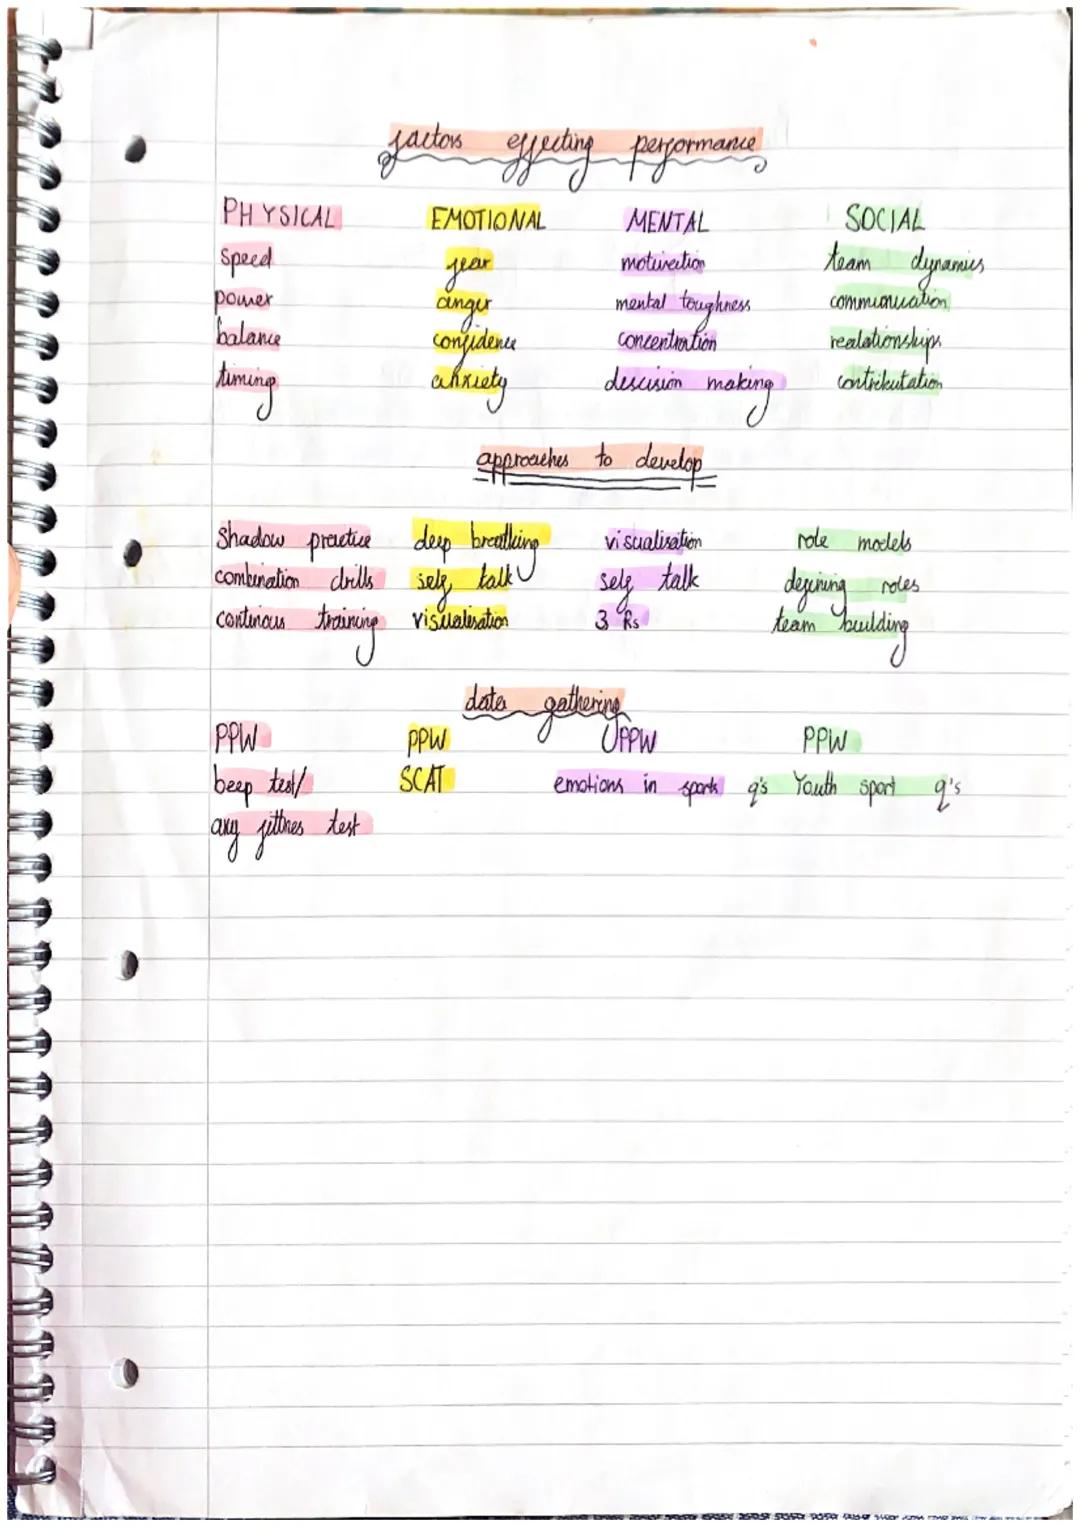 factors effecting performance
PHYSICAL EMOTIONAL MENTAL SOCIAL
Speed fear motivation team dynamics
power anger mental toughness communication
balance confidence concentration realationships
timing anxiety descision making contributation
approaches to develop
Shadow practice deep breathing visualisation role models
combination drills self talk self talk defining roles
continous training visualisation 3 Rs team building
data gathering
PPW PPW PPW PPW
beep test/ SCAT emotions in sports q's Youth sport q's
any fittnes test